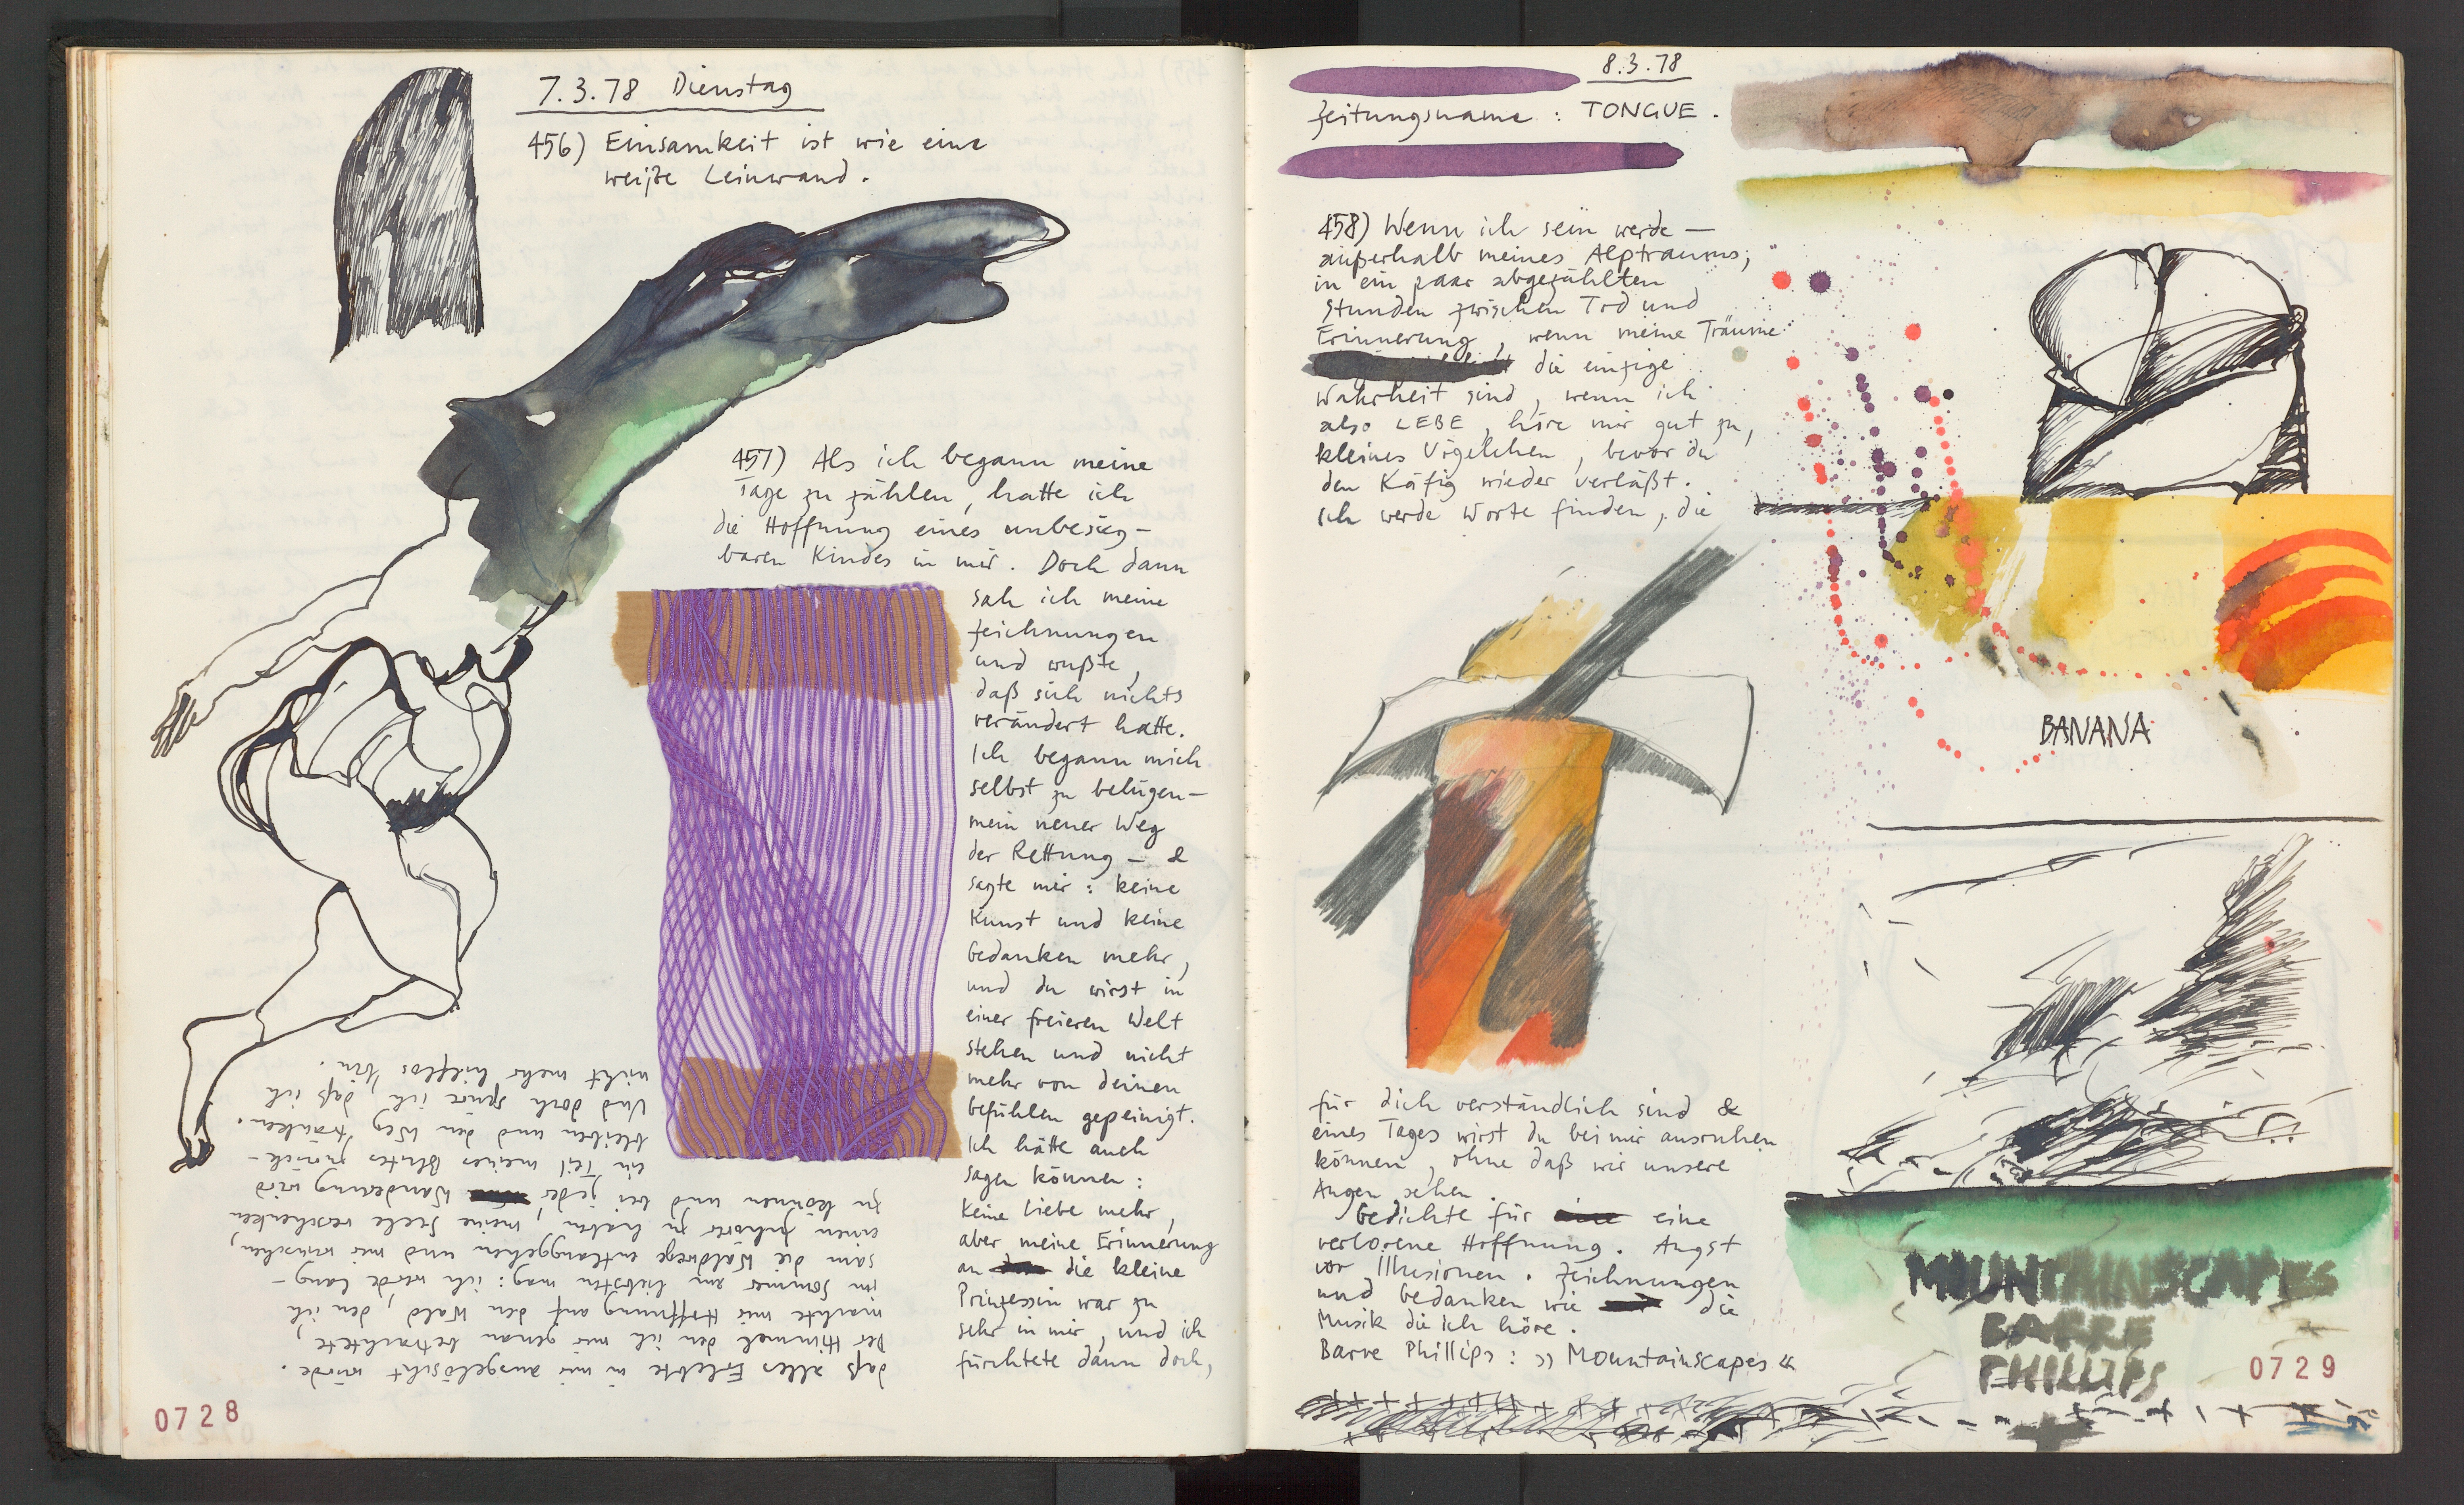 7.3.78 Dienstag
456) Einsamkeit ist wie eine
weiße Leinwand.
457) Als ich begann meine
Tage zu zählen, hatte ich
die Hoffnung eines unbesieg-
baren Kindes in mir. Doch dann
sah ich meine
Zeichnungen
und wußte,
daß sich nichts
verändert hatte.
Ich begann mich
selbst zu belügen-
mein neuer Weg
der Rettung - &
sagte mir: keine
Kunst und keine
Gedanken mehr,
und du wirst in
einer freieren Welt
stehen und nicht
mehr von deinen
Gefühlen gepeinigt.
Ich hätte auch
sagen können:
Keine Liebe mehr,
aber meine Erinnerung
an die kleine
Prinzessin war zu
sehr in mir, und ich
fürchtete dann doch,
daß alles Erlebte in mir ausgelöscht würde.
Der Himmel den ich mir genau betrachtete,
machte mir Hoffnung auf den Wald, den ich
im Sommer am liebsten mag: ich werde lang-
sam die Waldwege entlanggehen und mir wünschen,
einen Zuhörer zu haben, meine Seele verschenken
zu können und bei jeder Wanderung wird
ein Teil meines Blutes zurück-
bleiben und den Weg tränken.
Und doch spüre ich, daß ich
nicht mehr hilflos bin.
0728
8.3.78
Zeitungsname: TONGUE.
458) Wenn ich sein werde -
außerhalb meines Alptraums;
in ein paar abgezählten
Stunden zwischen Tod und
Erinnerung, wenn meine Träume
die einzige
Wahrheit sind, wenn ich
also LEBE, höre mir gut zu,
kleines Vögelchen, bevor du
den Käfig wieder verläßt.
Ich werde Worte finden, die
für dich verständlich sind &
eines Tages wirst du bei mir ausruhen
können, ohne daß wir unsere
Augen sehen.
Gedichte für eine
verlorene Hoffnung. Angst
vor Illusionen. Zeichnungen
und Gedanken wie die
Musik die ich höre.
Barre Phillips: »Mountainscapes«
BANANA
MOUNTAINSCAPES
BARRE
PHILLIPS
0729